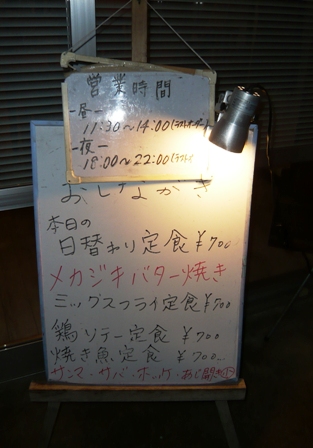 営業時間
-昼-
11:30~14:00(ラストオーダー)
-夜-
18:00~22:00(ラスト
おしながき
本日の
日替わり定食¥700
メカジキバター焼き
ミックスフライ定食¥700
鶏ソテー定食 ¥700
焼き魚定食 ¥700
サンマ・サバ・ホッケ・あじ開